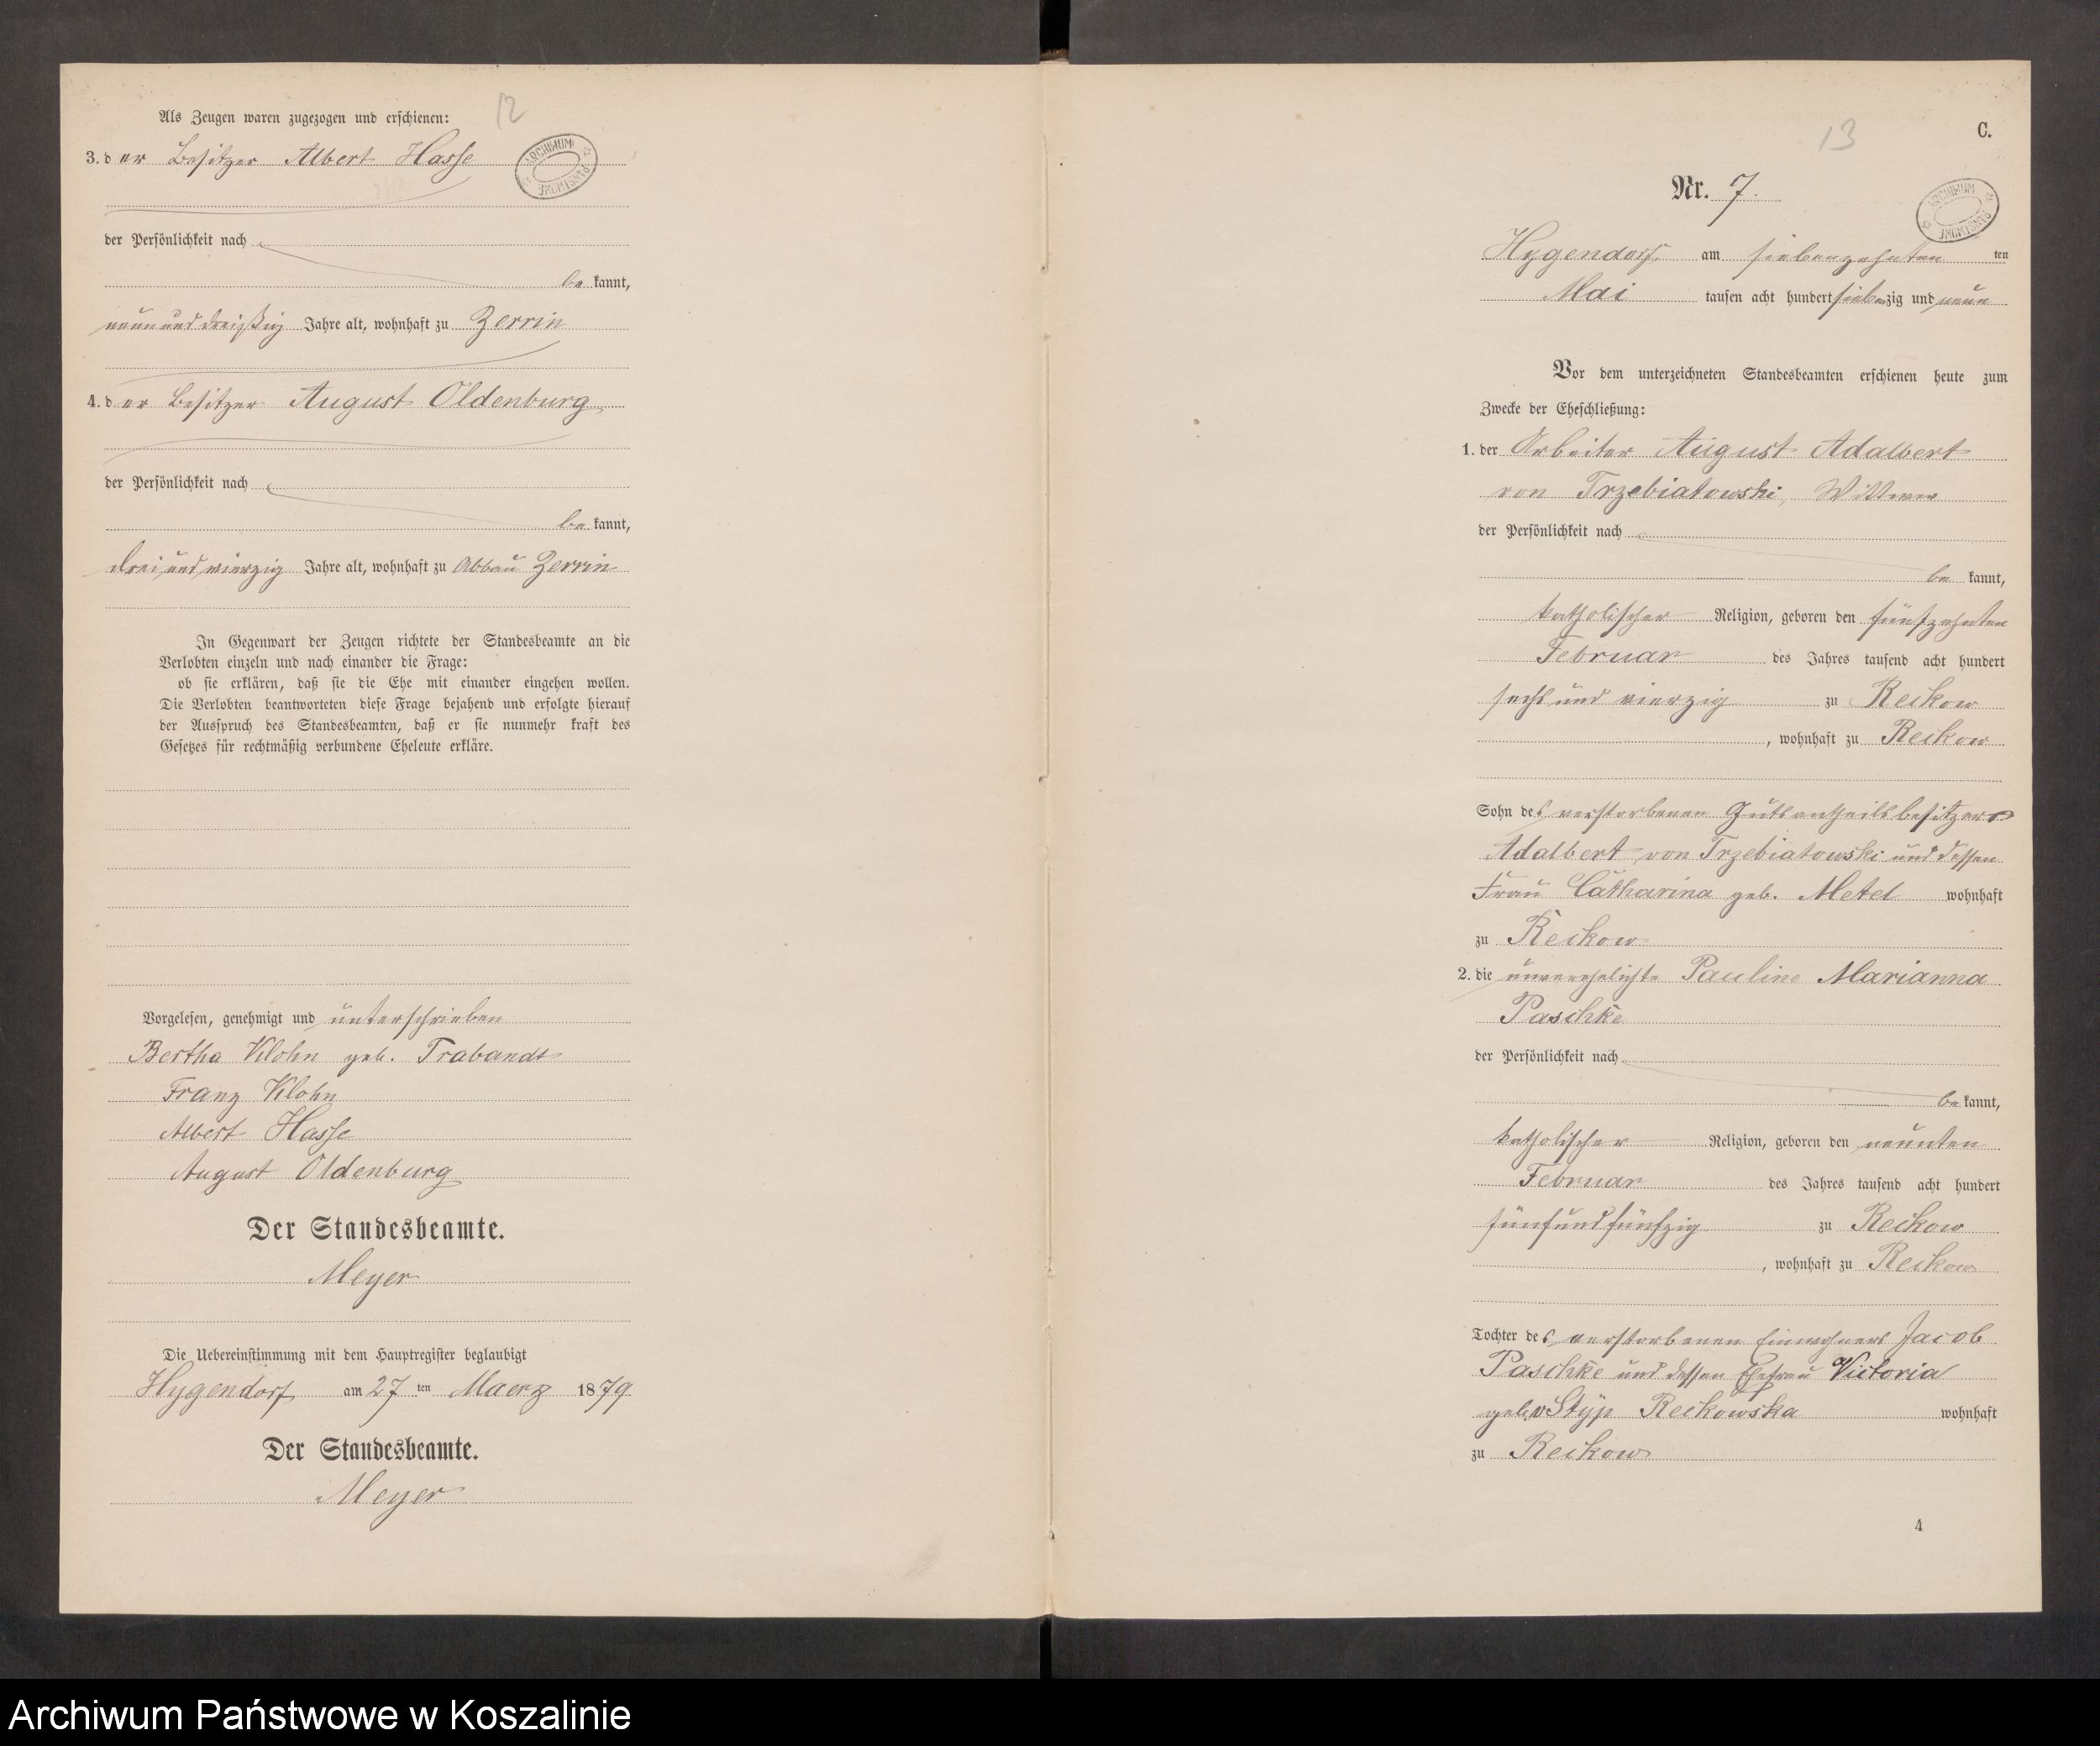 12
Als Zeugen waren zugezogen und erschienen:
3. der Besitzer Albert Hasse
ARCHIWUM PAŃSTWOWE
der Persönlichkeit nach
bekannt,
neununddreißig Jahre alt, wohnhaft zu Zerrin
4. der Besitzer August Oldenburg,
der Persönlichkeit nach
bekannt,
dreiundvierzig Jahre alt, wohnhaft zu Abbau Zerrin
In Gegenwart der Zeugen richtete der Standesbeamte an die
Verlobten einzeln und nach einander die Frage:
ob sie erklären, daß sie die Ehe mit einander eingehen wollen.
Die Verlobten beantworteten diese Frage bejahend und erfolgte hierauf
der Ausspruch des Standesbeamten, daß er sie nunmehr kraft des
Gesetzes für rechtmäßig verbundene Eheleute erkläre.
Vorgelesen, genehmigt und unterschrieben
Bertha Klohn geb. Trabandt
Franz Klohn
Albert Hasse
August Oldenburg
Der Standesbeamte.
Meyer
Die Uebereinstimmung mit dem Hauptregister beglaubigt
Hygendorf am 27 ten Maerz 1879
Der Standesbeamte.
Meyer
13
C.
Nr. 7.
ARCHIWUM PAŃSTWOWE
Hygendorf am siebenzehnten ten
Mai tausen acht hundert siebenzig und neun
Vor dem unterzeichneten Standesbeamten erschienen heute zum
Zwecke der Eheschließung:
1. der Arbeiter August Adalbert
von Trzebiatowski, Wittwer
der Persönlichkeit nach
bekannt,
katholischer Religion, geboren den fünfzehnten
Februar des Jahres tausend acht hundert
sechs und vierzig zu Reckow
, wohnhaft zu Reckow
Sohn des verstorbenen Gutsantheilsbesitzers
Adalbert von Trzebiatowski und dessen
Frau Catharina geb. Metel wohnhaft
zu Reckow
2. die unverehelichte Pauline Marianna
Paschke
der Persönlichkeit nach
bekannt,
katholischer Religion, geboren den neunten
Februar des Jahres tausend acht hundert
fünfundfünfzig zu Reckow
, wohnhaft zu Reckow
Tochter des verstorbenen Einwohners Jacob
Paschke und dessen Ehefrau Victoria
geb. v Styp Reckowska wohnhaft
zu Reckow
4
Archiwum Państwowe w Koszalinie